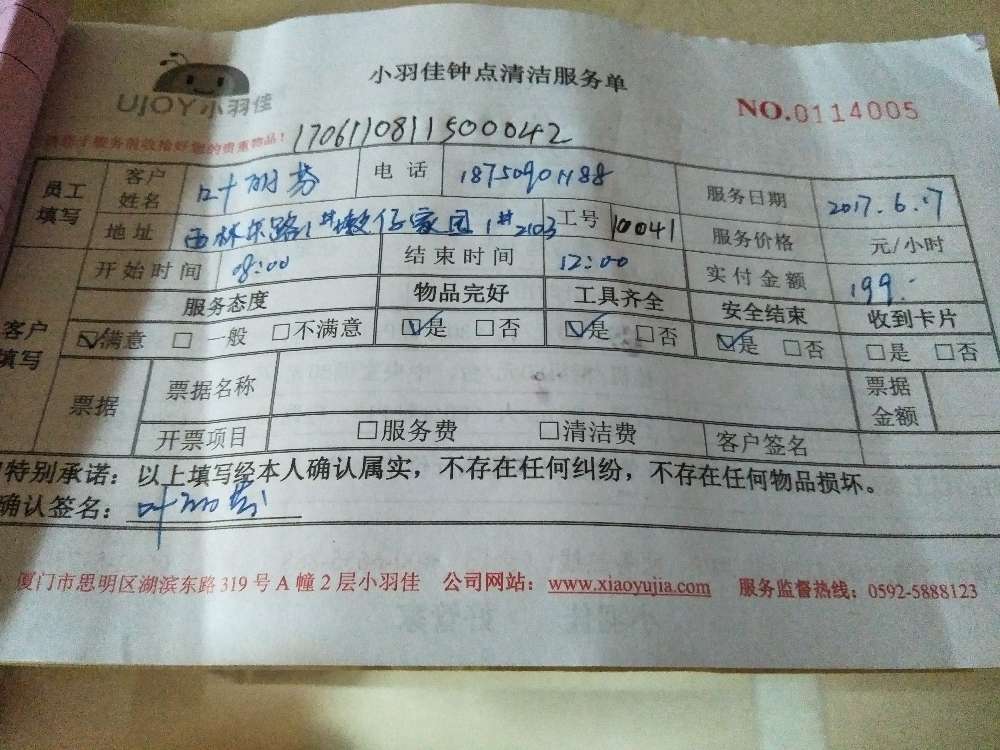 UJOY小羽佳
小羽佳钟点清洁服务单
NO.0114005
服务前收拾好您的贵重物品！
170611081150042
员工填写 客户姓名 叶 芬 电话 18750901188 服务日期 2017.6.17
地址 西林东路1#墩仔家园1#2103 工号 10041 服务价格 元/小时
开始时间 08:00 结束时间 12:00 实付金额 199.
客户填写 服务态度 物品完好 工具齐全 安全结束 收到卡片
☑满意 □一般 □不满意 ☑是 □否 ☑是 □否 ☑是 □否 □是 □否
票据 票据名称 票据金额
开票项目 □服务费 □清洁费 客户签名
特别承诺：以上填写经本人确认属实，不存在任何纠纷，不存在任何物品损坏。
确认签名：叶 芬
厦门市思明区湖滨东路319号A幢2层小羽佳 公司网站：www.xiaoyujia.com 服务监督热线：0592-5888123